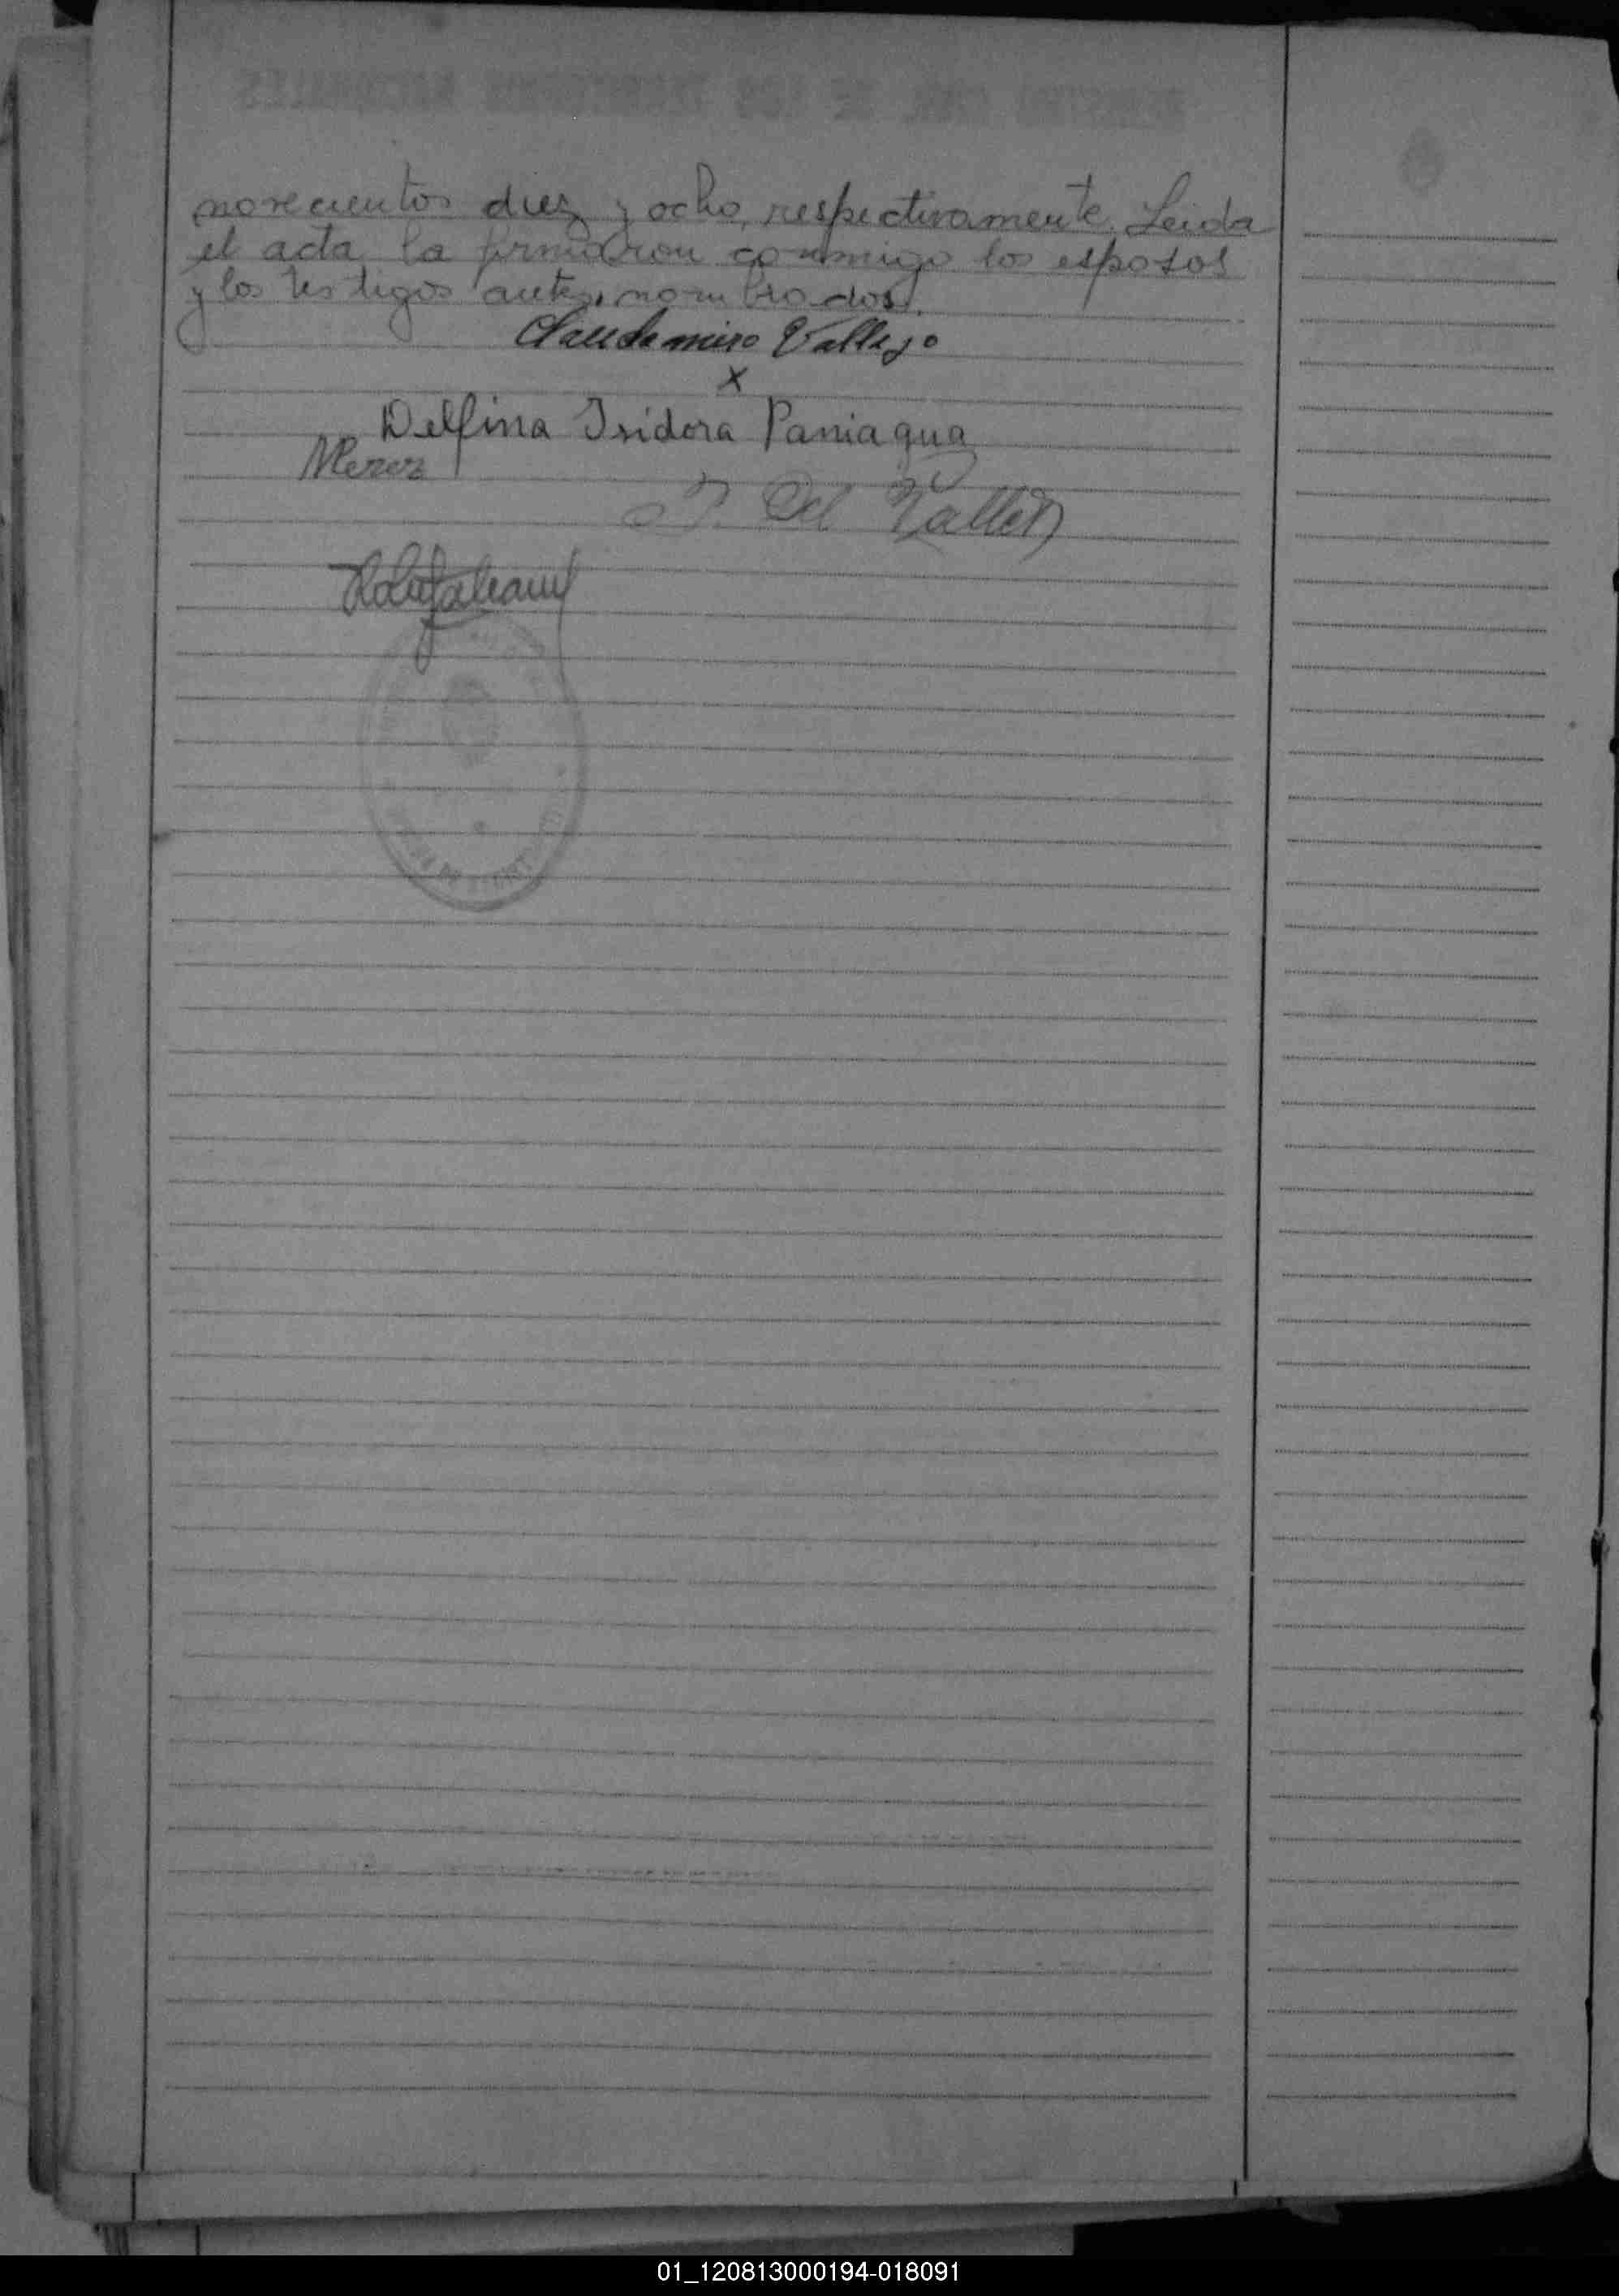 novecientos diez y ocho, respectivamente. Leida
el acta la firmaron conmigo los esposos
y los testigos antes nombrados.
Claudamiro Vallejo
x
Delfina Isidora Paniagua
Del Valle
01_120813000194-018091